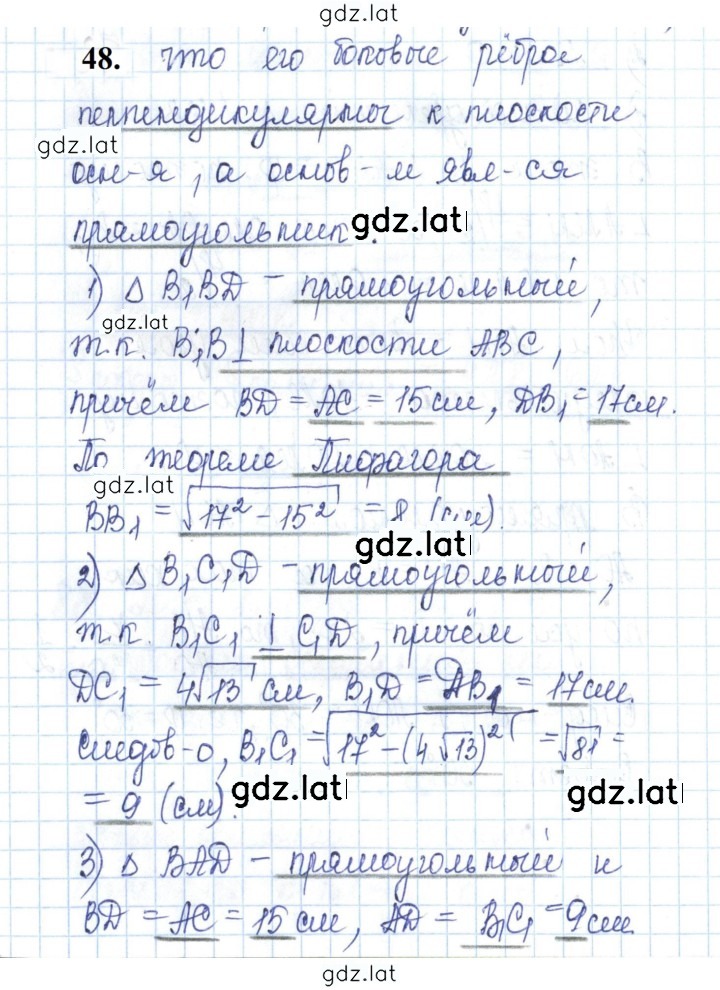 gdz.lat
48. что его боковые рёбра
перпендикулярны к плоскости
gdz.lat
осн-я, а основ-м явл-ся
прямоугольник.
gdz.lat
1) Δ B₁BD – прямоугольный,
gdz.lat
т.к. B₁B ⊥ плоскости ABC,
причём BD = AC = 15 см, DB₁ = 17 см.
По теореме Пифагора
gdz.lat
BB₁ = √(17² - 15²) = 8 (см).
gdz.lat
2) Δ B₁C₁D – прямоугольный,
т.к. B₁C₁ ⊥ C₁D, причём
DC₁ = 4√13 см, B₁D = DB₁ = 17 см.
Следов-о, B₁C₁ = √(17² - (4√13)²) = √81 =
gdz.lat
gdz.lat
= 9 (см).
3) Δ BAD – прямоугольный и
BD = AC = 15 см, AD = B₁C₁ = 9 см
gdz.lat